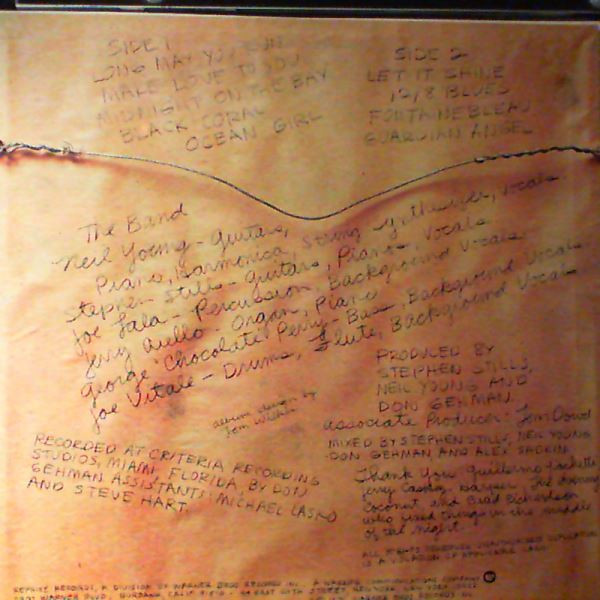 SIDE 1
LONG MAY YOU RUN
MALE LOVE TO YOU
MIDNIGHT ON THE BAY
BLACK CORAL
OCEAN GIRL
SIDE 2
LET IT SHINE
12/8 BLUES
FONTAINEBLEAU
GUARDIAN ANGEL
The Band
Neil Young - Guitars,
Piano, Harmonica, String Synthesizer, Vocals.
Stephen Stills - Guitars, Pianos, Vocals
Joe Lala - Percussion, Background Vocals.
Jerry Aiello - Organ, Piano
George "Chocolate" Perry - Bass, Background Vocals
Joe Vitale - Drums, Flute, Background Vocals
album design by
Tom Wilkes
PRODUCED BY
STEPHEN STILLS,
NEIL YOUNG AND
DON GEHMAN.
Associate Producer: Tom Dowd
MIXED BY STEPHEN STILLS, NEIL YOUNG
DON GEHMAN AND ALEX SADKIN
RECORDED AT CRITERIA RECORDING
STUDIOS, MIAMI, FLORIDA, BY DON
GEHMAN ASSISTANTS: MICHAEL LASKO
AND STEVE HART.
Thank You: Guillermo
Jerry
Coconut and Brad Richardson
who fixed things in the middle
of the night.
ALL RIGHTS RESERVED UNAUTHORIZED DUPLICATION
IS A VIOLATION OF APPLICABLE LAWS
REPRISE RECORDS, A DIVISION OF WARNER BROS RECORDS INC. A WARNER COMMUNICATIONS COMPANY
3300 WARNER BLVD, BURBANK, CALIF 91510 - 44 EAST 50TH STREET, NEW YORK, NEW YORK 10022
WARNER BROS RECORDS INC.